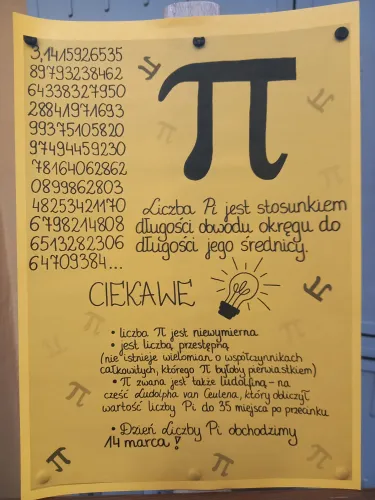 3,1415926535
89793238462
64338327950
28841971693
99375105820
97494459230
78164062862
0899862803
48253421170
6798214808
6513282306
64709384...
π
Liczba Pi jest stosunkiem
długości obwodu okręgu do
długości jego średnicy.
CIEKAWE
• liczba π jest niewymierna
• jest liczbą przestępną
(nie istnieje wielomian o współczynnikach
całkowitych, którego π byłoby pierwiastkiem)
• π zwana jest także ludolfiną – na
cześć Ludolpha van Ceulena, który obliczył
wartość liczby Pi do 35 miejsca po przecinku
• Dzień Liczby Pi obchodzimy
14 marca!